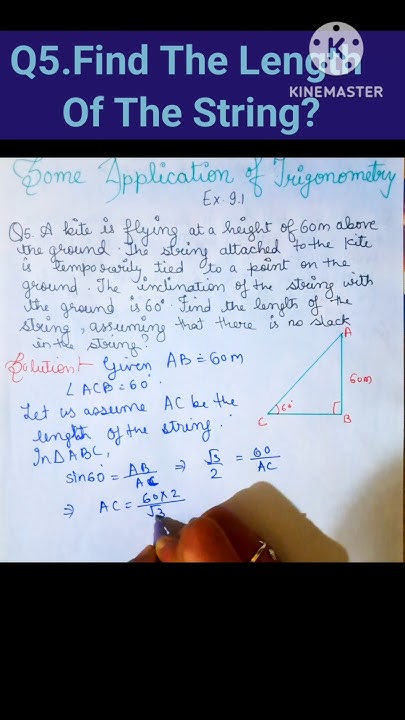 Q5.Find The Length
Of The String?
KINEMASTER
Some Application of Trigonometry
Ex. 9.1
Q5. A kite is flying at a height of 60m above
the ground. The string attached to the kite
is temporarily tied to a point on the
ground. The inclination of the string with
the ground is 60°. Find the length of the
string, assuming that there is no slack
in the string?
Solution:- Given AB = 60m
∠ACB = 60°
Let us assume AC be the
lenght of the string.
In ΔABC,
sin60° = AB/AC ⇒ √3/2 = 60/AC
⇒ AC = 60×2/√3
A
60m
C 60° B